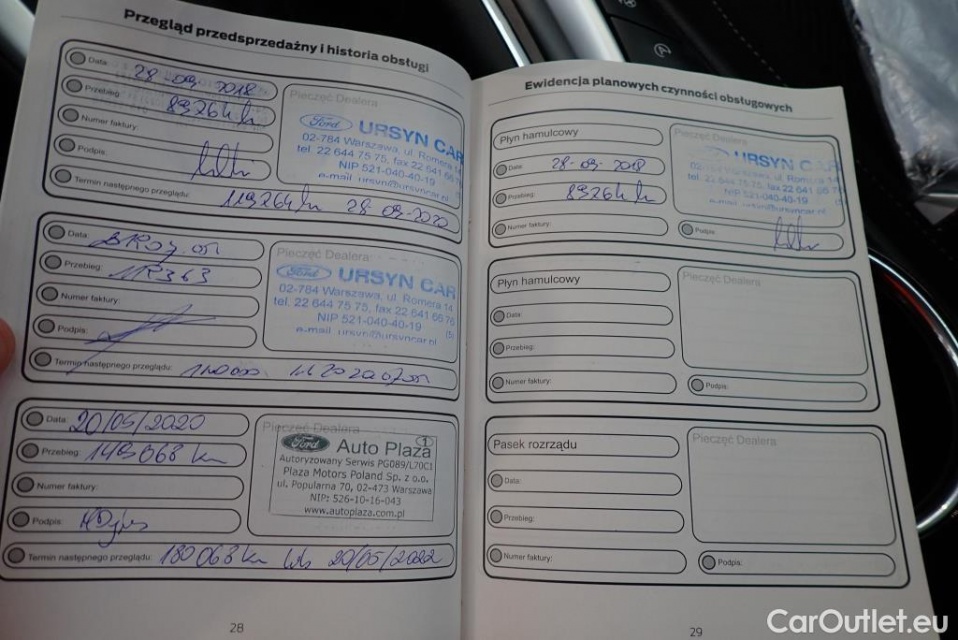 Przegląd przedsprzedażny i historia obsługi
Data: 28-09-2018
Przebieg: 89264 km
Numer faktury:
Podpis:
Termin następnego przeglądu: 119264 km 28-09-2020
Pieczęć Dealera
Ford URSYN CAR
02-784 Warszawa, ul. Romera 14
tel. 22 644 75 75, fax 22 641 66 76
NIP 521-040-40-19
e-mail ursyn@ursyncar.pl
Data:
Przebieg:
Numer faktury:
Podpis:
Termin następnego przeglądu:
Pieczęć Dealera:
Ford URSYN CAR
02-784 Warszawa, ul. Romera 14
tel. 22 644 75 75, fax 22 641 66 76
NIP 521-040-40-19 (5)
e-mail ursyn@ursyncar.pl
Data: 20/05/2020
Przebieg: 149068 km
Numer faktury:
Podpis:
Termin następnego przeglądu: 180068 km lub 20/05/2022
Pieczęć Dealera
Ford Auto Plaza 1
Autoryzowany Serwis PG089/L70C1
Plaza Motors Poland Sp. z o.o.
ul. Popularna 70, 02-473 Warszawa
NIP: 526-10-16-043
www.autoplaza.com.pl
28
Ewidencja planowych czynności obsługowych
Płyn hamulcowy
Data: 28-09-2018
Przebieg: 89264 km
Numer faktury:
Pieczęć Dealera
URSYN CAR
NIP 521-040-40-19
Podpis:
Płyn hamulcowy
Data:
Przebieg:
Numer faktury:
Pieczęć Dealera
Podpis:
Pasek rozrządu
Data:
Przebieg:
Numer faktury:
Pieczęć Dealera
Podpis:
29
CarOutlet.eu